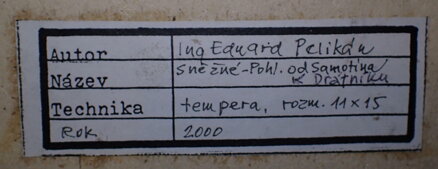 Autor Ing Eduard Pelikán
Název Sněžné-Pohl. od Samotína
k Drátníku
Technika tempera, rozm. 11x15
Rok 2000